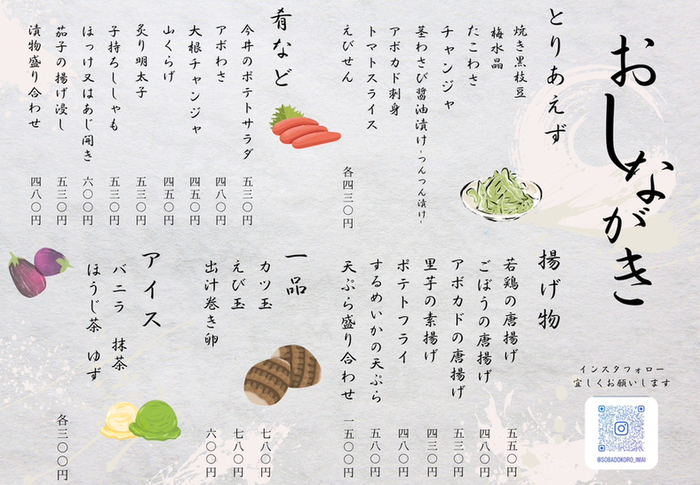 おしながき
とりあえず
焼き黒枝豆
梅水晶
たこわさ
チャンジャ
茎わさび醤油漬け-つんつん漬け-
アボカド刺身
トマトスライス
えびせん
各四三〇円
肴など
今井のポテトサラダ 五三〇円
アボわさ 四八〇円
大根チャンジャ 四五〇円
山くらげ 四五〇円
炙り明太子 五三〇円
子持ちししゃも 五三〇円
ほっけ又はあじ開き 六〇〇円
茄子の揚げ浸し 五三〇円
漬物盛り合わせ 四八〇円
揚げ物
若鶏の唐揚げ 五五〇円
ごぼうの唐揚げ 四八〇円
アボカドの唐揚げ 五三〇円
里芋の素揚げ 四三〇円
ポテトフライ 四八〇円
するめいかの天ぷら 五八〇円
天ぷら盛り合わせ 一五〇〇円
一品
カツ玉 七八〇円
えび玉 七八〇円
出汁巻き卵 六〇〇円
アイス
バニラ 抹茶
ほうじ茶 ゆず
各三〇〇円
インスタフォロー
宜しくお願いします
@SOBADOKORO_IMAI